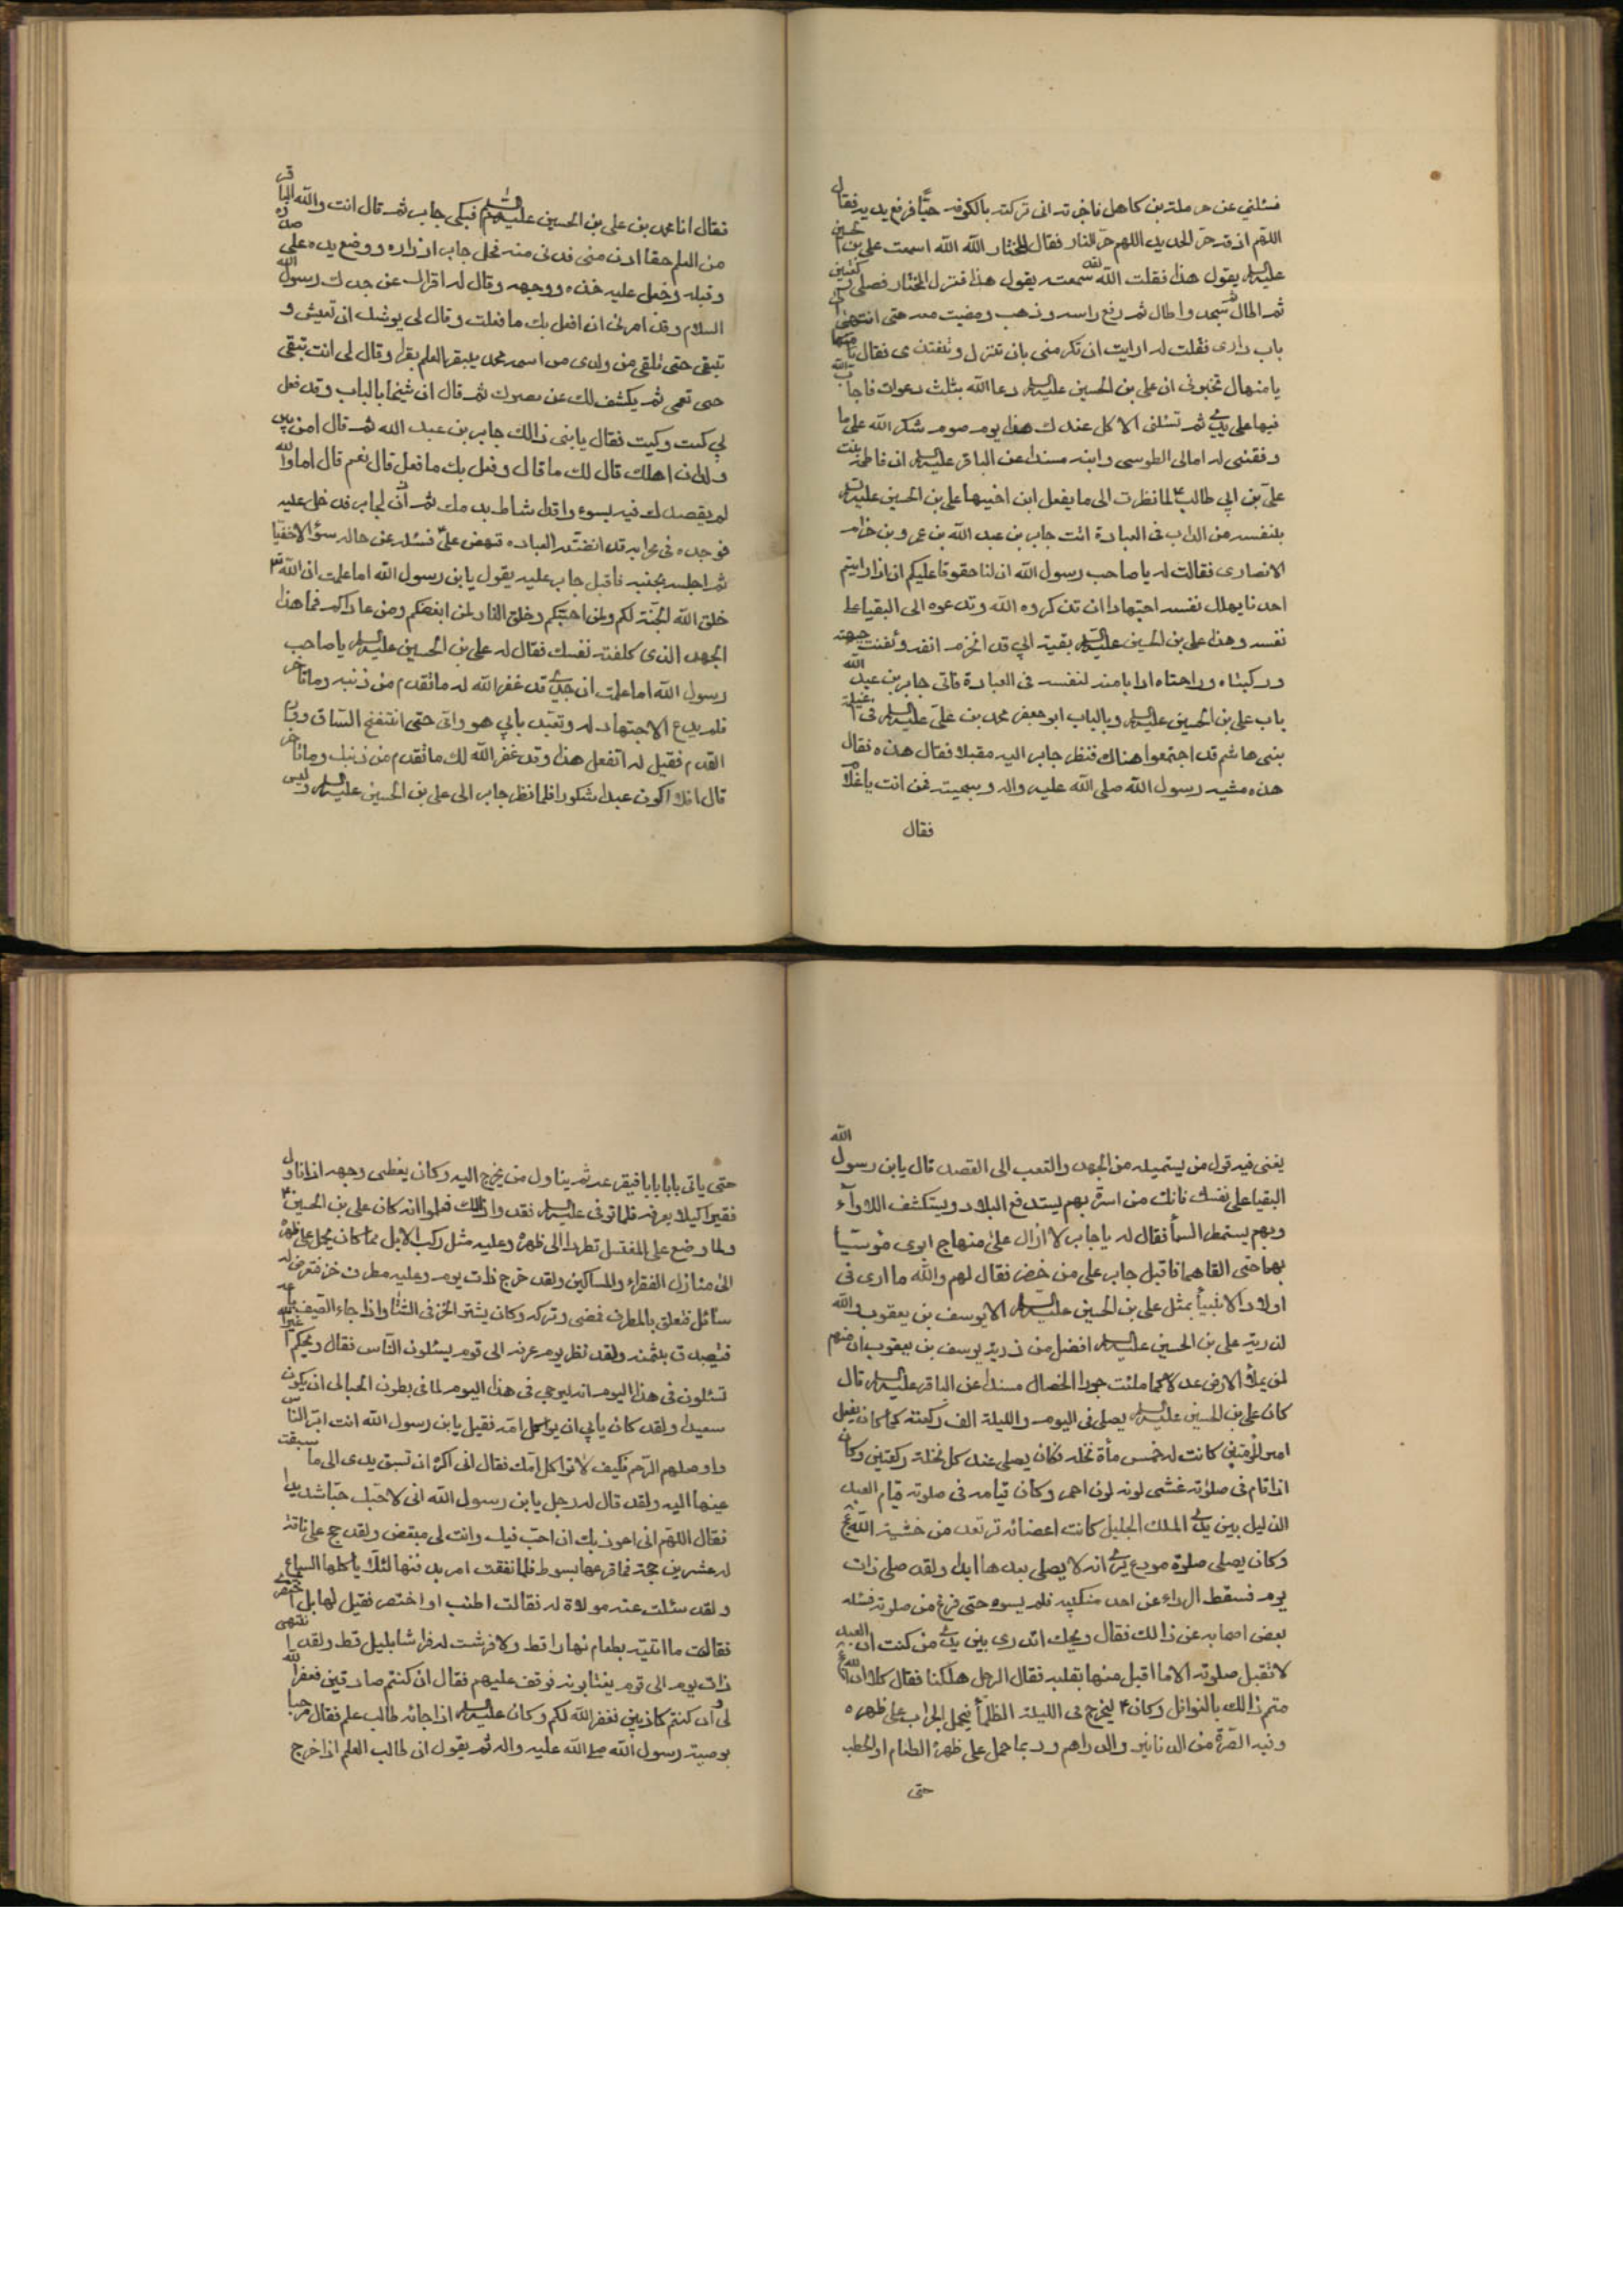 فسئلني عن حرملة بن كاهل فاخبرته انى تركته بالكوفه حيّا فرفع يديه فقال
اللهم اذقه حرّ الحديد اللهم حرّ النار فقال المختار الله الله اسمعت على بن الحسين
عليه السلام يقول هذا فقلت الله لقد سمعته يقول هذا فنزل المختار فصلى ركعتين
ثم اطال ثم سجد واطال ثم رفع راسه وذهب ومضيت معه حتى انتهى الى
باب دارى فقلت له ارايت ان تكرمنى بان تنزل وتتغدى فقال
يا منهال تخبرنى ان على بن الحسين عليه السلام دعا الله بثلث دعوات فاجابه الله
فيها على يدى ثم تسئلنى الاكل عندك هذا يوم صوم شكر الله على ما
وفقنى له امالى الطوسى وابنه مسندا عن الباقر عليه السلام ان فاطمة بنت
علىّ بن ابي طالب ع لما نظرت الى ما يفعل ابن اخيها على بن الحسين عليه السلام
بنفسه من الداب فى العبادة اتت جابر بن عبد الله بن عمرو بن حزام
الانصارى فقالت له يا صاحب رسول الله ان لنا حقوقا عليكم ان اذا رايتم
احدنا يهلك نفسه اجتهادا ان تذكروه الله وتدعوه الى البقيا على
نفسه وهذا على بن الحسين عليه السلام بقية ابي قد انخرم انفه وثفنت جبهته
وركبتاه وراحتاه ادابا منه لنفسه فى العبادة فاتى جابر بن عبد الله
باب على بن الحسين عليه السلام وبالباب ابو جعفر محمد بن علىّ عليه السلام فى اغيلة
بنى هاشم قد اجتمعوا هناك فنظر جابر اليه مقبلا فقال هذه فقال
هذه مشية رسول الله صلى الله عليه واله وسجيته فمن انت يا غلام
فقال
فقال انا محمد بن على بن الحسين عليهم السلام فبكى جابر ثم قال انت والله الباقر
من العلم حقا ادن منى فدنى منه فحل جابر ازراره ووضع يده على صدره
وقبله وجعل عليه خده ووجهه وقال له اقرئك عن جدك رسول الله
السلام وقد امرنى ان افعل بك ما فعلت وقال لى يوشك ان تعيش و
تبقى حتى تلقى من ولدى من اسمه محمد يبقر العلم بقرا وقال لى انت تبقى
حتى تعمى ثم يكشف لك عن بصرك ثم قال ان شيخا بالباب وقد فعل
بي كيت وكيت فقال يا بنى ذالك جابر بن عبد الله ثم قال امن بين
ولدان اهلك قال لك ما قال وفعل بك ما فعل قال نعم قال اما والله
لم يقصدك فيه بسوء ولقد اشاط بدمك ثم اذن لجابر فدخل عليه
فوجده فى محرابه قد انضته العباده فنهض علىّ فسئله عن حاله سؤالا حفيا
ثم اجلسه بجنبه فاقبل جابر عليه يقول يابن رسول الله اما علمت ان الله
خلق الله الجنة لكم ولمن احبّكم وخلق النار لمن ابغضكم ومن عاداكم فما هذا
الجهد الذى كلفته نفسك فقال له على بن الحسين عليه السلام يا صاحب
رسول الله اما علمت ان جدى قد غفر الله له ما تقدم من ذنبه وما تاخر
فلم يدع الاجتهاد له وتعبد بابي هو وامى حتى انتفخ الساق وورم
القدم فقيل له اتفعل هذا وقد غفر الله لك ما تقدم من ذنبك وما تاخر
قال افلا اكون عبدا شكورا فلما نظر جابر الى على بن الحسين عليه السلام وليس
يغنى فيه قول من يستميله من الجهد والتعب الى القصد قال يابن رسول الله
البقيا على نفسك فانك من اسرة بهم يستدفع البلاء ويستكشف اللاواء
وبهم يستمطر السماء فقال له يا جابر لا ازال على منهاج ابوى مؤتسيا
بهما حتى القاهما فاقبل جابر على من حضر فقال لهم والله ما ارى فى
اولاد الانبياء بمثل على بن الحسين عليه السلام الا يوسف بن يعقوب والله
لذرية على بن الحسين عليه السلام افضل من ذرية يوسف بن يعقوب ان منهم
لمن يملأ الارض عدلا كما ملئت جورا الخصال مسندا عن الباقر عليه السلام قال
كان على بن الحسين عليه السلام يصلى فى اليوم والليلة الف ركعة كما كان يفعل
امير المؤمنين كانت له خمس مأة نخله فكان يصلى عند كل نخلة ركعتين وكان
اذا قام فى صلوته غشى لونه لون احمر وكان قيامه فى صلوته قيام العبد
الذليل بين يدى الملك الجليل كانت اعضائه ترتعد من خشية الله
وكان يصلى صلوة مودع يرى انه لا يصلى بعدها ابدا ولقد صلى ذات
يوم فسقط الرداء عن احد منكبيه فلم يسوه حتى فرغ من صلوته فسئله
بعض اصحابه عن ذالك فقال ويحك اتدرى بين يدى من كنت ان العبد
لا تقبل صلوته الا ما اقبل منها بقلبه فقال الرجل هلكنا فقال كلا ان الله
متم ذالك بالنوافل وكان ع ليخرج فى الليلة الظلماء فيحمل الجراب على ظهره
وفيه الصرة من الدنانير والدراهم وربما حمل على ظهره الطعام او الحطب
حتى
حتى ياتى بابا بابا فيقرعه ثم يناول من يخرج اليه وكان يغطى وجهه اذا ناول
فقيرا كيلا يعرفه فلما توفى عليه السلام فقدوا ذالك فعلموا انه كان على بن الحسين ع
ولما وضع على المغتسل نظروا الى ظهره وعليه مثل ركب الابل مما كان يحمل على ظهره
الى منازل الفقراء والمساكين ولقد خرج ذات يوم وعليه مطرف خز فتعرض له
سائل فتعلق بالمطرف فمضى وتركه وكان يشترى الخز فى الشتاء واذا جاء الصيف باعه
فتصدق بثمنه ولقد نظر يوم عرفه الى قوم يسئلون الناس فقال ويحكم اغير الله
تسئلون فى هذا اليوم انه ليرجى فى هذا اليوم لما فى بطون الحبالى ان يكون
سعيدا ولقد كان يابي ان يواكل امه فقيل يابن رسول الله انت ابرّ الناس
واوصلهم الرحم فكيف لا تواكل امك فقال انى اكره ان تسبق يدى الى ما سبقت
عينها اليه ولقد قال له رجل يابن رسول الله انى لاحبك حبا شديدا
فقال اللهم انى اعوذ بك ان احب فيك وانت لى مبغض ولقد حج على ناقة
له عشرين حجة فما قرعها بسوط فلما نفقت امر بدفنها لئلا ياكلها السباع
ولقد سئلت عنه مولاة له فقالت اطنب او اختصر فقيل لها بل اختصرى
فقالت ما اتيته بطعام نهارا قط ولا فرشت له فراشا بليل قط ولقد انتهى
ذات يوم الى قوم يغتابونه فوقف عليهم فقال ان كنتم صادقين فغفر الله
لى وان كنتم كاذبين فغفر الله لكم وكان عليه السلام اذا جائه طالب علم فقال مرحبا
بوصية رسول الله صلى الله عليه واله ثم يقول ان طالب العلم اذا خرج